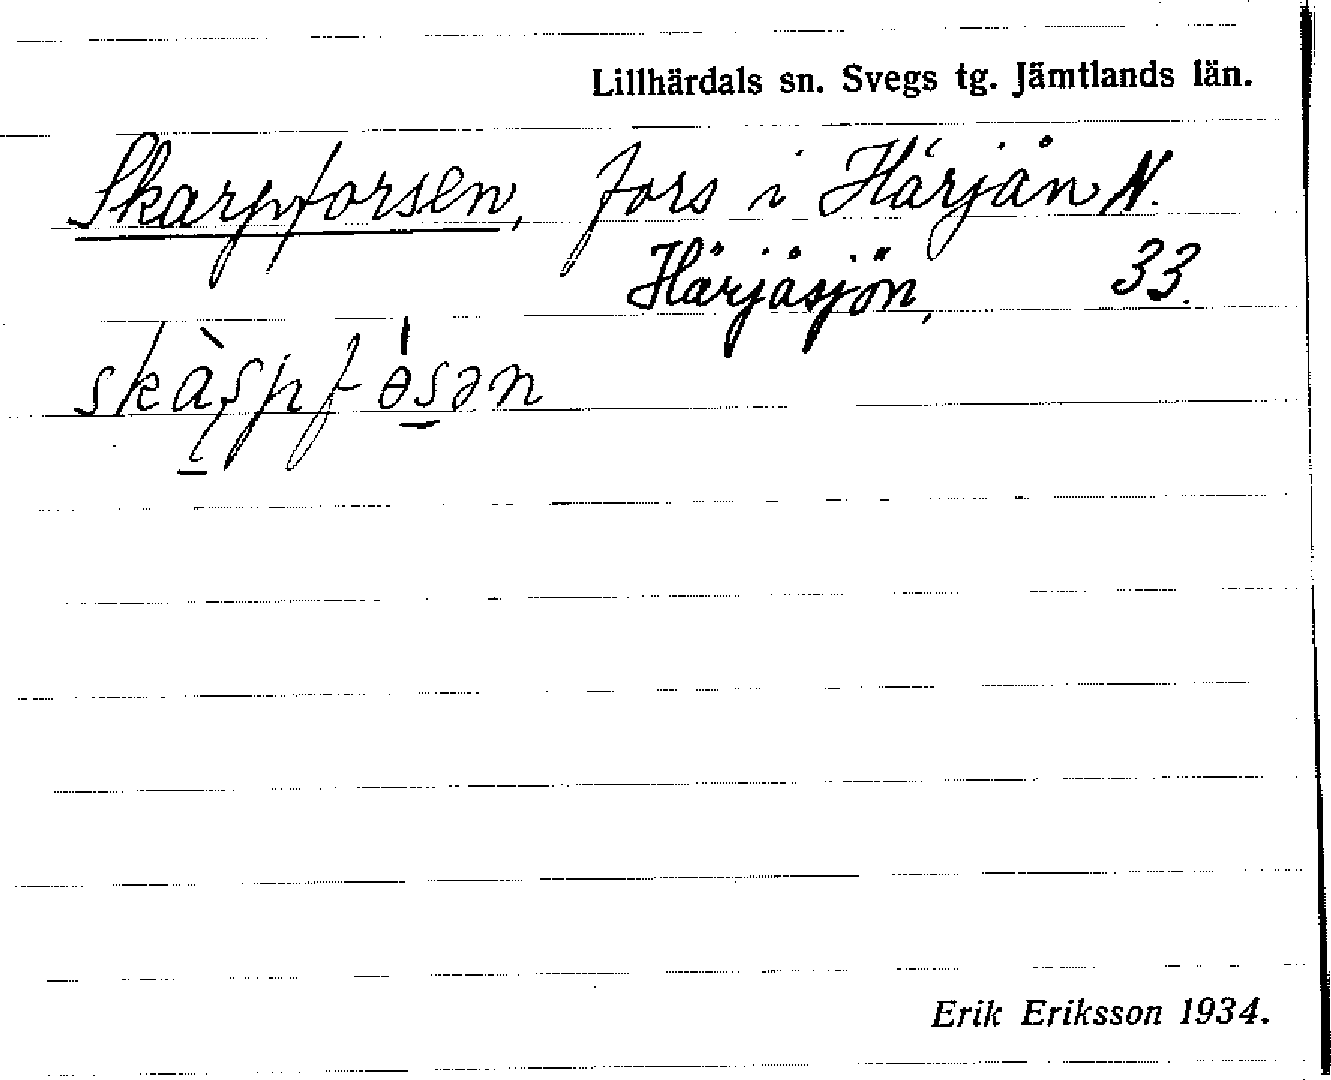 Lillhärdals sn. Svegs tg. Jämtlands län.
Skarpforsen, fors i Härjån N.
Härjåsjön, 33.
Erik Eriksson 1934.